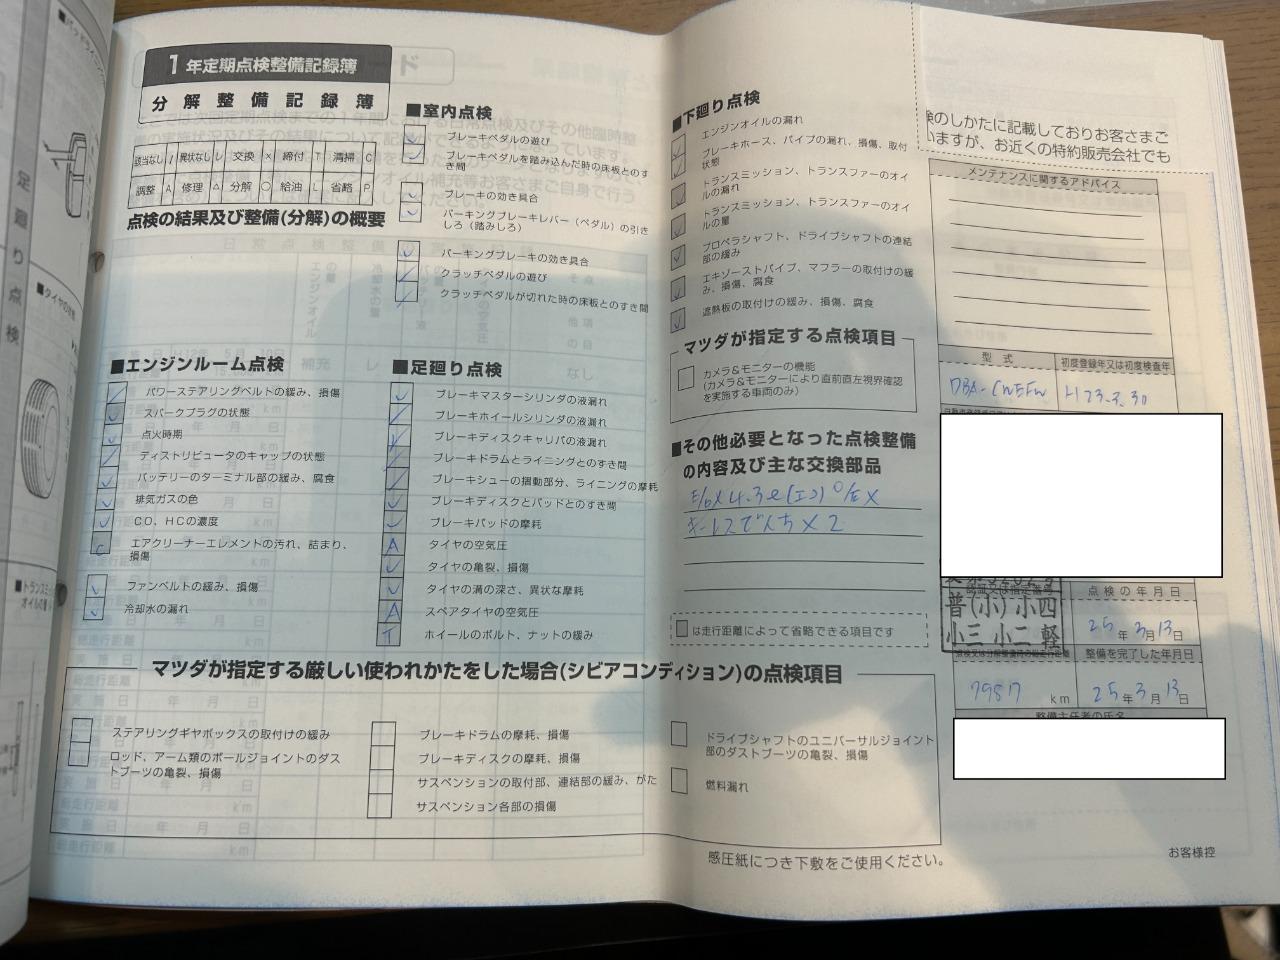 1年定期点検整備記録簿
分解整備記録簿
該当なし / 異状なし レ 交換 × 締付 T 清掃 C
調整 A 修理 △ 分解 ○ 給油 L 省略 P
点検の結果及び整備(分解)の概要
■室内点検
レ ブレーキペダルの遊び
レ ブレーキペダルを踏み込んだ時の床板とのすき間
レ ブレーキの効き具合
レ パーキングブレーキレバー（ペダル）の引きしろ（踏みしろ）
レ パーキングブレーキの効き具合
/ クラッチペダルの遊び
/ クラッチペダルが切れた時の床板とのすき間
■エンジンルーム点検
/ パワーステアリングベルトの緩み、損傷
レ スパークプラグの状態
レ 点火時期
/ ディストリビュータのキャップの状態
レ バッテリーのターミナル部の緩み、腐食
レ 排気ガスの色
レ CO、HCの濃度
C エアクリーナーエレメントの汚れ、詰まり、
損傷
レ ファンベルトの緩み、損傷
レ 冷却水の漏れ
■足廻り点検
レ ブレーキマスターシリンダの液漏れ
/ ブレーキホイールシリンダの液漏れ
ブレーキディスクキャリパの液漏れ
/ ブレーキドラムとライニングとのすき間
/ ブレーキシューの摺動部分、ライニングの摩耗
レ ブレーキディスクとパッドとのすき間
レ ブレーキパッドの摩耗
A タイヤの空気圧
レ タイヤの亀裂、損傷
レ タイヤの溝の深さ、異状な摩耗
A スペアタイヤの空気圧
T ホイールのボルト、ナットの緩み
■下廻り点検
レ エンジンオイルの漏れ
レ ブレーキホース、パイプの漏れ、損傷、取付
状態
レ トランスミッション、トランスファーのオイ
ルの漏れ
レ トランスミッション、トランスファーのオイ
ルの量
レ プロペラシャフト、ドライブシャフトの連結
部の緩み
レ エキゾーストパイプ、マフラーの取付けの緩
み、損傷、腐食
レ 遮熱板の取付けの緩み、損傷、腐食
マツダが指定する点検項目
カメラ&モニターの機能
(カメラ&モニターにより直前直左視界確認
を実施する車両のみ)
■その他必要となった点検整備
の内容及び主な交換部品
E/o× 4.3ℓ(エコ) O/E×
キーレスでんち×2
は走行距離によって省略できる項目です
マツダが指定する厳しい使われかたをした場合(シビアコンディション)の点検項目
ステアリングギヤボックスの取付けの緩み
ロッド、アーム類のボールジョイントのダス
トブーツの亀裂、損傷
ブレーキドラムの摩耗、損傷
ブレーキディスクの摩耗、損傷
サスペンションの取付部、連結部の緩み、がた
サスペンション各部の損傷
ドライブシャフトのユニバーサルジョイント
部のダストブーツの亀裂、損傷
燃料漏れ
検のしかたに記載しておりお客さまご
いますが、お近くの特約販売会社でも
メンテナンスに関するアドバイス
型式 初度登録年又は初度検査年
DBA-CWEFW H23.3.30
普(小)小四
小三 小二 軽
点検の年月日
25年3月13日
整備を完了した年月日
79817 km 25年3月13日
整備主任者の氏名
感圧紙につき下敷をご使用ください。
お客様控
足廻り点検
■タイヤの
■トランスミ
オイルの量